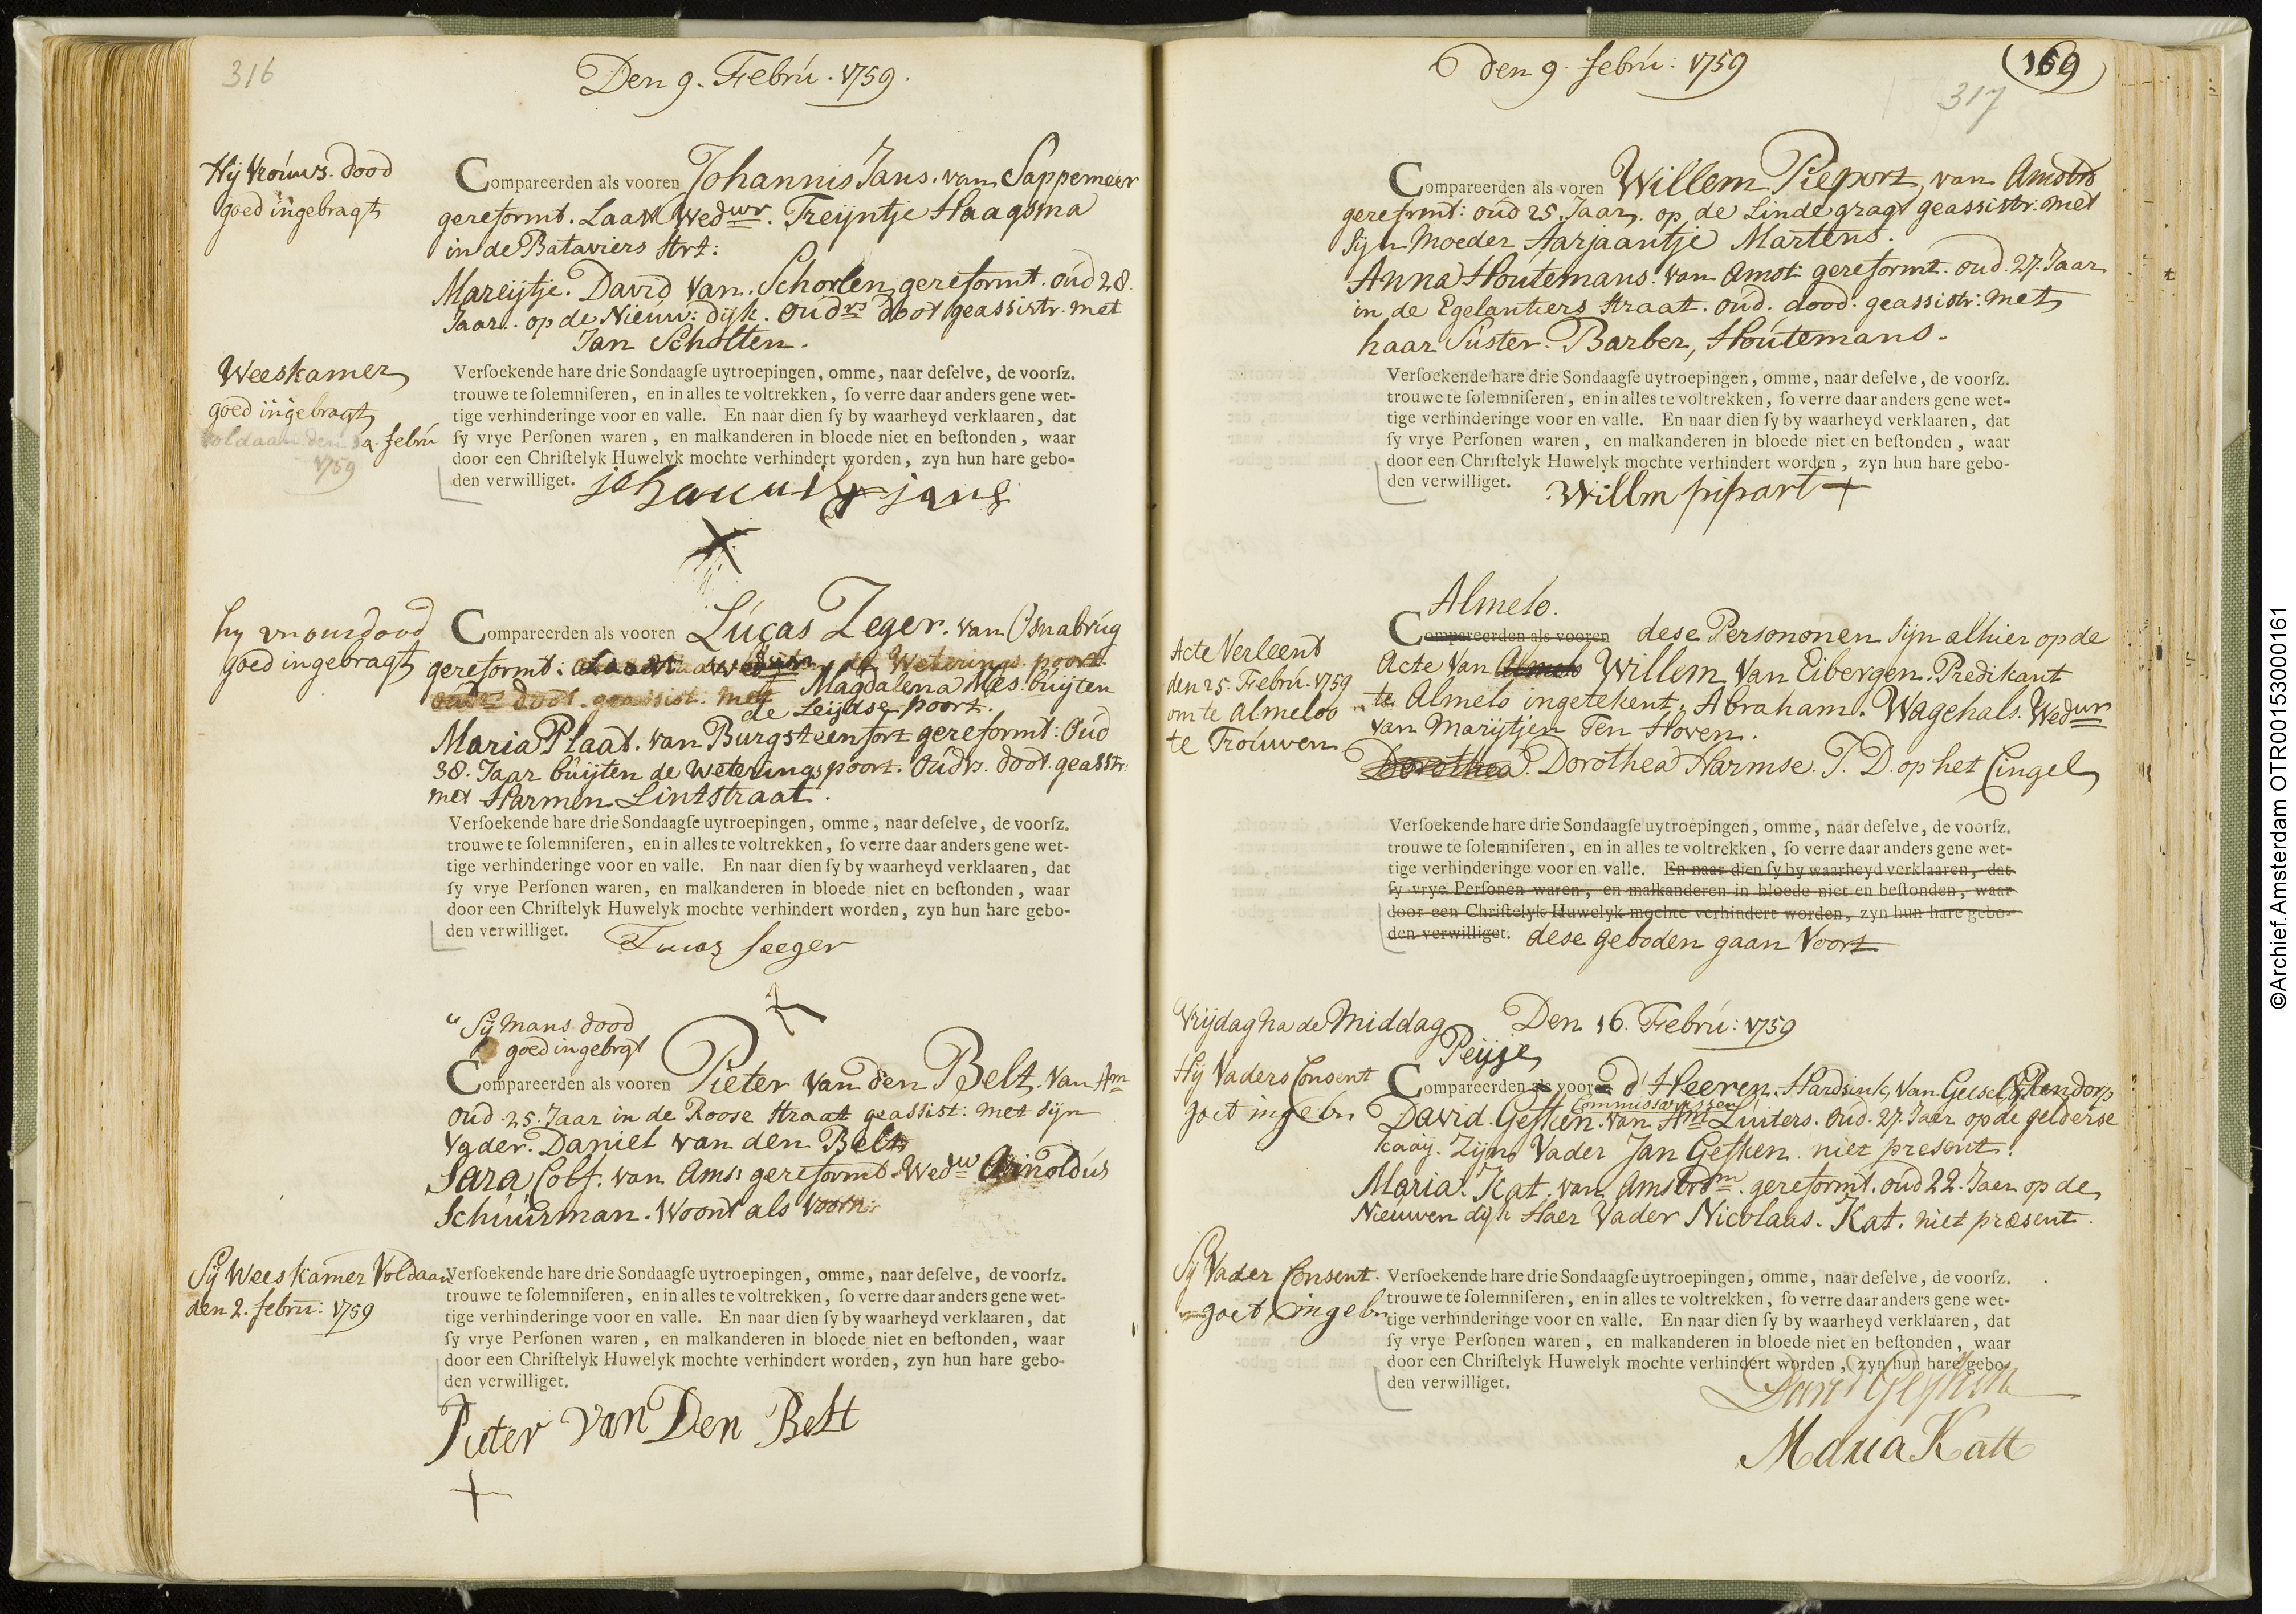 316
Den 9. Febrú. 1759.
Hij Vroúws dood
goed ingebragt
Compareerden als vooren Johannis Jans. van Sappemeer
gereformt. Laast Wedwr. Treijntje Haagsma
in de Bataviers strt:
Mareijtje. David van. Schorlen gereformt. oúd 28.
Jaar. op de Nieuw: dijk. oúdrs doot geassistr. met
Jan Scholten.
Weeskamer
goed ingebragt
voldaan den 9. febrú
1759
Verſoekende hare drie Sondaagſe uytroepingen, omme, naar deſelve, de voorſz.
trouwe te ſolemniſeren, en in alles te voltrekken, ſo verre daar anders gene wet-
tige verhinderinge voor en valle. En naar dien ſy by waarheyd verklaaren, dat
ſy vrye Perſonen waren, en malkanderen in bloede niet en beſtonden, waar
door een Chriſtelyk Huwelyk mochte verhindert worden, zyn hun hare gebo-
den verwilliget. johannis jans
hy vrous dood
goed ingebragt
Compareerden als vooren Lúcas Zeger. van Osnabrúg
gereformt: Laast wedwr de Weterings poort.
oúdrs doot. geassist: met Magdalena Mes. búijten
de Leijdse poort.
Maria Plaat. van Burgsteenfort gereformt: oúd
38. Jaar búijten de Weteringspoort. oúdrs. doot. geasstr:
met Harmen Lintstraat.
Verſoekende hare drie Sondaagſe uytroepingen, omme, naar deſelve, de voorſz.
trouwe te ſolemniſeren, en in alles te voltrekken, ſo verre daar anders gene wet-
tige verhinderinge voor en valle. En naar dien ſy by waarheyd verklaaren, dat
ſy vrye Perſonen waren, en malkanderen in bloede niet en beſtonden, waar
door een Chriſtelyk Huwelyk mochte verhindert worden, zyn hun hare gebo-
den verwilliget. Lucas Seeger
Sij Mans dood
goed ingebrgt
Compareerden als vooren Pieter van den Belt. van Am
oúd. 25. Jaar in de Roose straat geassist: met sijn
vader. Daniel van den Belt
Sara Colf. van Ams: gereformt. Wedw Arnoldús
Schúúrman. Woont als voorn:
Sij Weeskamer Voldaan
den 2. febrú: 1759
Verſoekende hare drie Sondaagſe uytroepingen, omme, naar deſelve, de voorſz.
trouwe te ſolemniſeren, en in alles te voltrekken, ſo verre daar anders gene wet-
tige verhinderinge voor en valle. En naar dien ſy by waarheyd verklaaren, dat
ſy vrye Perſonen waren, en malkanderen in bloede niet en beſtonden, waar
door een Chriſtelyk Huwelyk mochte verhindert worden, zyn hun hare gebo-
den verwilliget.
Pieter van Den Belt
den 9. febrú: 1759
169
317
Compareerden als voren Willem Pieport, van Amstr
gereformt: oúd 25. Jaar. op de Linde gragt geassistr: met
Sijn Moeder Aarjaantje Martens.
Anna Hoútemans. van Amst: gereformt. oud. 27. Jaar
in de Egelantiers straat. oúd. dood. geassistr: met
haar Súster. Barber, Hoútemans.
Verſoekende hare drie Sondaagſe uytroepingen, omme, naar deſelve, de voorſz.
trouwe te ſolemniſeren, en in alles te voltrekken, ſo verre daar anders gene wet-
tige verhinderinge voor en valle. En naar dien ſy by waarheyd verklaaren, dat
ſy vrye Perſonen waren, en malkanderen in bloede niet en beſtonden, waar
door een Chriſtelyk Huwelyk mochte verhindert worden, zyn hun hare gebo-
den verwilliget. Willm pipart
Almelo.
Acte Verleent
den 25. Febrú. 1759
om te Almeloo
te Troúwen
Compareerden als vooren dese Persononen Sijn alhier op de
Acte Van Almelo Willem Van Eibergen. Predikant
te Almelo ingetekent. Abraham. Wagehals. Wedwr
van Marijtjen Ten Hoven.
Dorothea. Dorothea Harmse. J. D. op het Cingel
Verſoekende hare drie Sondaagſe uytroepingen, omme, naar deſelve, de voorſz.
trouwe te ſolemniſeren, en in alles te voltrekken, ſo verre daar anders gene wet-
tige verhinderinge voor en valle. En naar dien ſy by waarheyd verklaaren, dat
ſy vrye Perſonen waren, en malkanderen in bloede niet en beſtonden, waar
door een Chriſtelyk Huwelyk mochte verhindert worden, zyn hun hare gebo-
den verwilliget. dese geboden gaan Voort
Vrijdag na de Middag Den 16. Febrú: 1759
Peyje
Hij Vaders Consent
goet ingebr
Compareerden als vooren d' Heeren. Hardsink, Van Geesel, &
Commissarissen
David Gesken. van Am Lúiters. oúd. 27. Jaar op de gelderse
kaaij. Zijn Vader Jan Gesken. niet present.
Maria. Kat. van Amstrdm. gereformt. oúd 22. Jaer op de
Nieuwen dijk Haer Vader Nicolaas. Kat. niet præsent.
Sij Vader Consent.
goet ingebr
Verſoekende hare drie Sondaagſe uytroepingen, omme, naar deſelve, de voorſz.
trouwe te ſolemniſeren, en in alles te voltrekken, ſo verre daar anders gene wet-
tige verhinderinge voor en valle. En naar dien ſy by waarheyd verklaaren, dat
ſy vrye Perſonen waren, en malkanderen in bloede niet en beſtonden, waar
door een Chriſtelyk Huwelyk mochte verhindert worden, zyn hun hare gebo-
den verwilliget. David Gesken
Maria Katt
©Archief.Amsterdam OTR00153000161